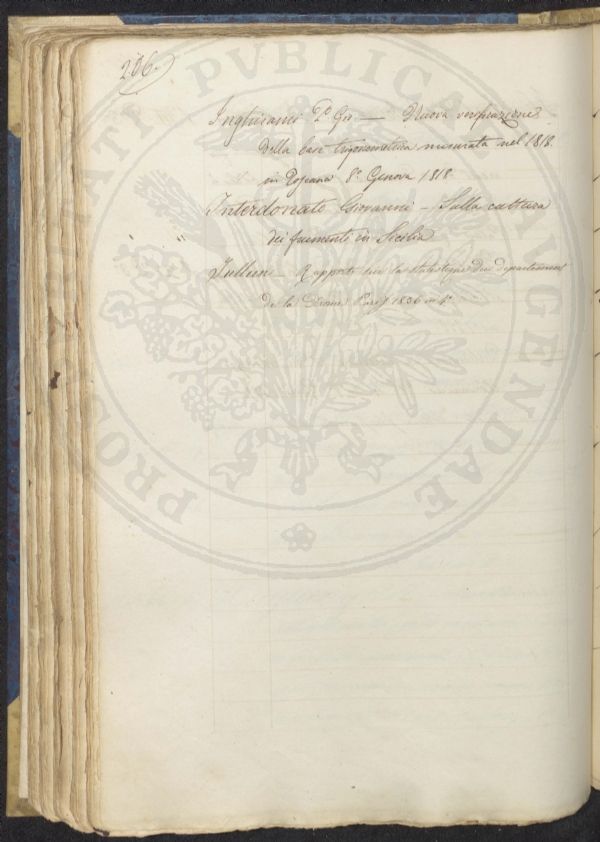 206
Inghirami P. Gio — Nuova verificazione
della base trigonometrica misurata nel 1818.
in Toscana 8° Genova 1818
Interdonato Giovanni — Sulla cultura
dei frumenti in Sicilia
Jullien — Rapport sur la statistique du departement
de la Drome Paris 1836 in 4°
PROSPERITATI PVBLICAE AVGENDAE